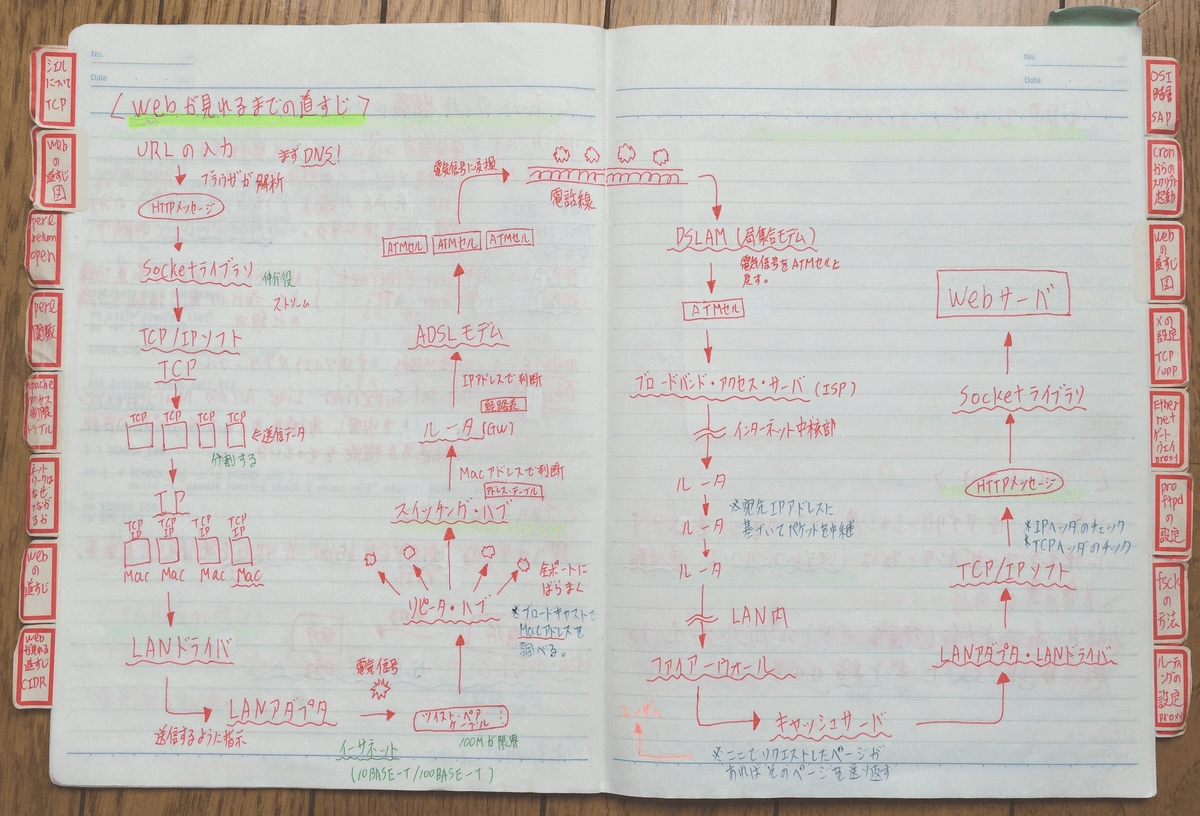 シェル
について
TCP
Web
の
道すじ
図
perl
return
open
perl
関数
apache
アクセス
制限
HTTL
ネット
ワークは
なぜ
つながる
るか
webの
道すじ
web
が見れる
道すじ
CIDR
No.
Date
〈Webが見れるまでの直すじ〉
URLの入力
まずDNS!
ブラウザが解析
HTTPメッセージ
Socketライブラリ
仲介役
ストリーム
TCP/IPソフト
TCP
TCP TCP TCP TCP
←送信データ
分割する
IP
TCP TCP TCP TCP
IP IP IP IP
Mac Mac Mac Mac
LANドライバ
LANアダプタ
送信するように指示
電気信号
イーサネット
(10BASE-T/100BASE-T)
ツイスト・ペア
ケーブル
100Mが限界
リピータ・ハブ
全ポートに
ばらまく
※ブロードキャストで
Macアドレスを
調べる。
スイッチング・ハブ
アドレス・テーブル
Macアドレスで判断
ルータ(GW)
経路表
IPアドレスで判断
ADSLモデム
ATMセル ATMセル ATMセル
電気信号に変換
電話線
No.
Date
DSLAM(局集合モデム)
電気信号をATMセルに
戻す。
ATMセル
ブロードバンド・アクセス・サーバ(ISP)
インターネット中核部
ルータ
ルータ
ルータ
※宛先IPアドレスに
基づいてパケットを中継
LAN内
ファイアーウォール
キャッシュサーバ
ユーザへ
※ここでリクエストしたページが
あればそのページを送り返す
LANアダプタ・LANドライバ
TCP/IPソフト
※IPヘッダのチェック
※TCPヘッダのチック
HTTPメッセージ
Socketライブラリ
Webサーバ
OSI
階層
SAP
cron
からの
スクリプト
起動
web
の
道すじ
図
Xの
設定
TCP
/UDP
Ether
net
ゲート
ウェイ
proxy
pro
ftpd
の
設定
fsck
の
方法
ルーティ
ングの
設定
proxy